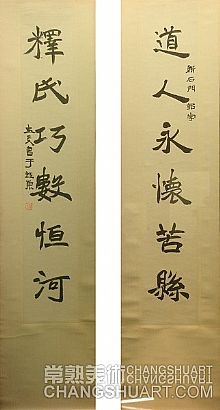 道人永懷苦縣
新石門銘字
釋氏巧數恒河
常熟美術 CHANGSHUART
CHANGSHUART.COM